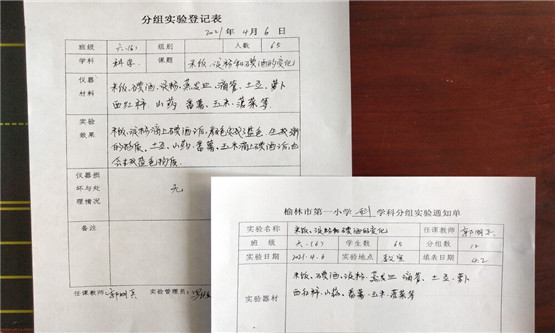 分组实验登记表
2021年4月6日
班级 六.(6) 组别 人数 65
学科 科学 课题 米饭、淀粉和碘酒的变化
仪器材料 米饭、碘酒、淀粉、蒸发皿、滴管、土豆、萝卜
西红柿、山药、番薯、玉米、菠菜等
实验效果 米饭、淀粉滴上碘酒后,颜色变成蓝色,生成新
的物质、土豆、山药、番薯、玉米滴上碘酒后,也
会生成蓝色物质。
仪器损坏与处理情况 无
备注
任课教师: 实验管理员:
榆林市第一小学 科 学科分组实验通知单
实验名称 米饭、淀粉和碘酒的变化 任课教师
班级 六.(6) 学生数 65 分组数 12
实验日期 2021.4.6 实验地点 教室 填表日期 4.2
实验器材 米饭、碘酒、淀粉、蒸发皿、滴管、土豆、萝卜
西红柿、山药、番薯、玉米、菠菜等